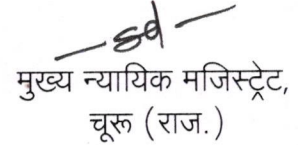 मुख्य न्यायिक मजिस्ट्रेट,
चूरू (राज.)